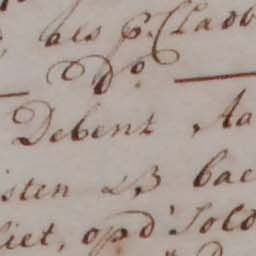 als p.r Cladb
d.o
Debent Aa
sten L3 bae
liet, op d' Sold